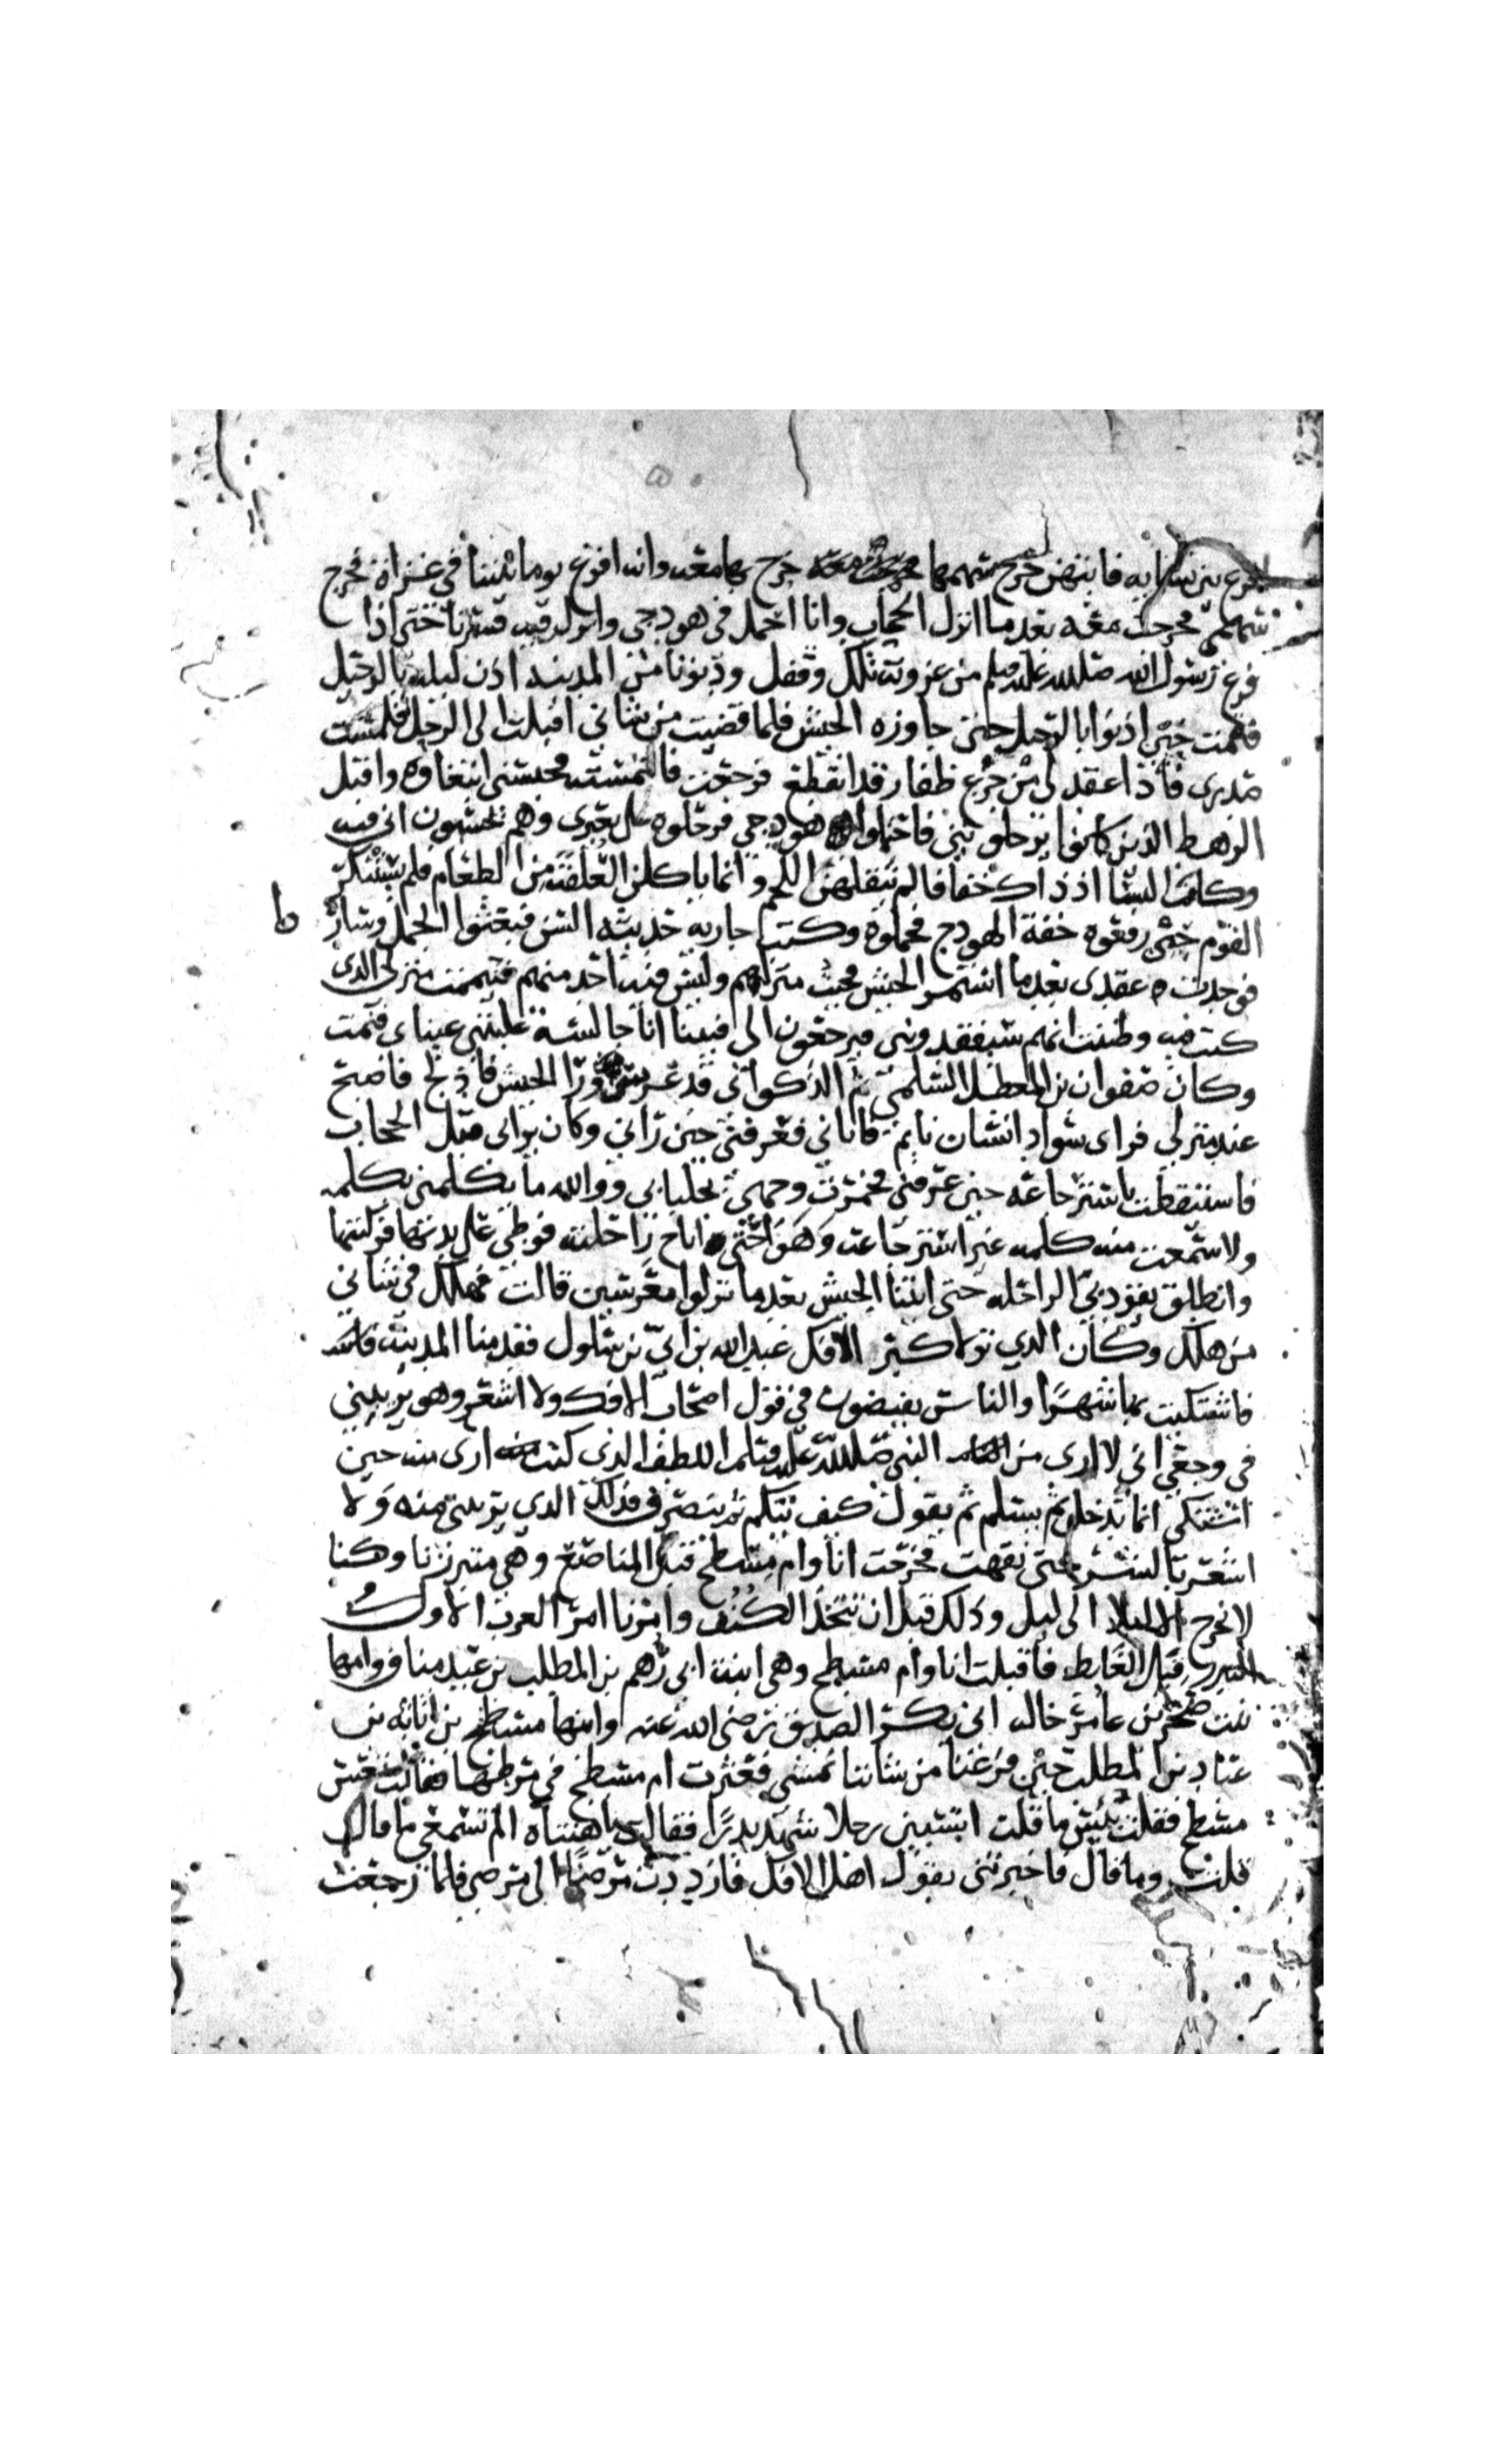 اقرع بين نسايه فايتهن خرج سهمها خرج بها معه وانه اقرع يوما بيننا في غزاة فخرج
سهمي فخرجت معه بعدما انزل الحجاب وانا احمل في هودجي وانزل فيه فسرنا حتى اذا
فرغ رسول الله صلى الله عليه وسلم من غزوته تلك وقفل ودنونا من المدينه اذن ليله بالرحيل
فقمت حين اذنوا بالرحيل حتى جاوزه الجيش فلما قضيت من شاني اقبلت الى الرحل فلمست
صدري فاذا عقد لي من جزع ظفار قد انقطع فرجعت فالتمسته فحبسني ابتغاوه واقبل
الرهط الذين كانوا يرحلوني فاحتملوا هودجي فرحلوه على بعيري وهم يحسبون اني فيه
وكانت النسا اذ ذاك خفافا لم يثقلهن اللحم وانما ياكلن العلقة من الطعام فلم يستنكر
القوم حين رفعوه خفة الهودج فحملوه وكنت جاريه حديثه السن فبعثوا الجمل وساروا
فوجدت عقدي بعدما استمر الجيش فجيت منزلهم وليس فيه احد منهم فتيممت منزلي الذي
كنت فيه وظننت انهم سيفقدوني فيرجعون الي فبينا انا جالسة غلبتني عيناي فنمت
وكان صفوان بن المعطل السلمي ثم الذكواني قد عرس ورا الجيش فادلج فاصبح
عند منزلي فراى سواد انسان نايم فاتاني فعرفني حين راني وكان يراني قبل الحجاب
فاستيقظت باسترجاعه حين عرفني فخمرت وجهي بجلبابي ووالله ما يكلمني بكلمه
ولا سمعت منه كلمه غير استرجاعه وهوى حتى اناخ راحلته فوطى على يدها فركبتها
وانطلق يقود بي الراحله حتى اتينا الجيش بعدما نزلوا معرسين قالت فهلك في شاني
من هلك وكان الذي تولا كبر الافك عبد الله بن ابي بن سلول فقدمنا المدينه
فاشتكيت بها شهرا والناس يفيضون في قول اصحاب الافك ولا اشعر وهو يريبني
في وجعي اني لا ارى من النبي صلى الله عليه وسلم اللطف الذي كنت ارى منه حين
اشتكي انما يدخل ثم يسلم ثم يقول كيف تيكم ثم ينصرف فذلك الذي يريبني منه ولا
اشعر بالشر حتى نقهت فخرجت انا وام مسطح قبل المناصع وهي متبرزنا وكنا
لا نخرج الا ليلا الى ليل وذلك قبل ان نتخذ الكنف وامرنا امر العرب الاول
التبرز قبل الغايط فاقبلت انا وام مسطح وهي ابنت ابي رهم بن المطلب بن عبد مناف وامها
بنت صخر بن عامر خالة ابي بكر الصديق رضي الله عنه وابنها مسطح بن اثاثه بن
عباد بن المطلب حين فرغنا من شاننا نمشي فعثرت ام مسطح في مرطها فقالت تعس
مسطح فقلت بئس ما قلت اتسبين رجلا شهد بدرا فقالت يا هنتاه الم تسمعي ما قال
قلت وما قال فاخبرتني بقول اهل الافك فازددت مرضا الى مرضي فلما رجعت